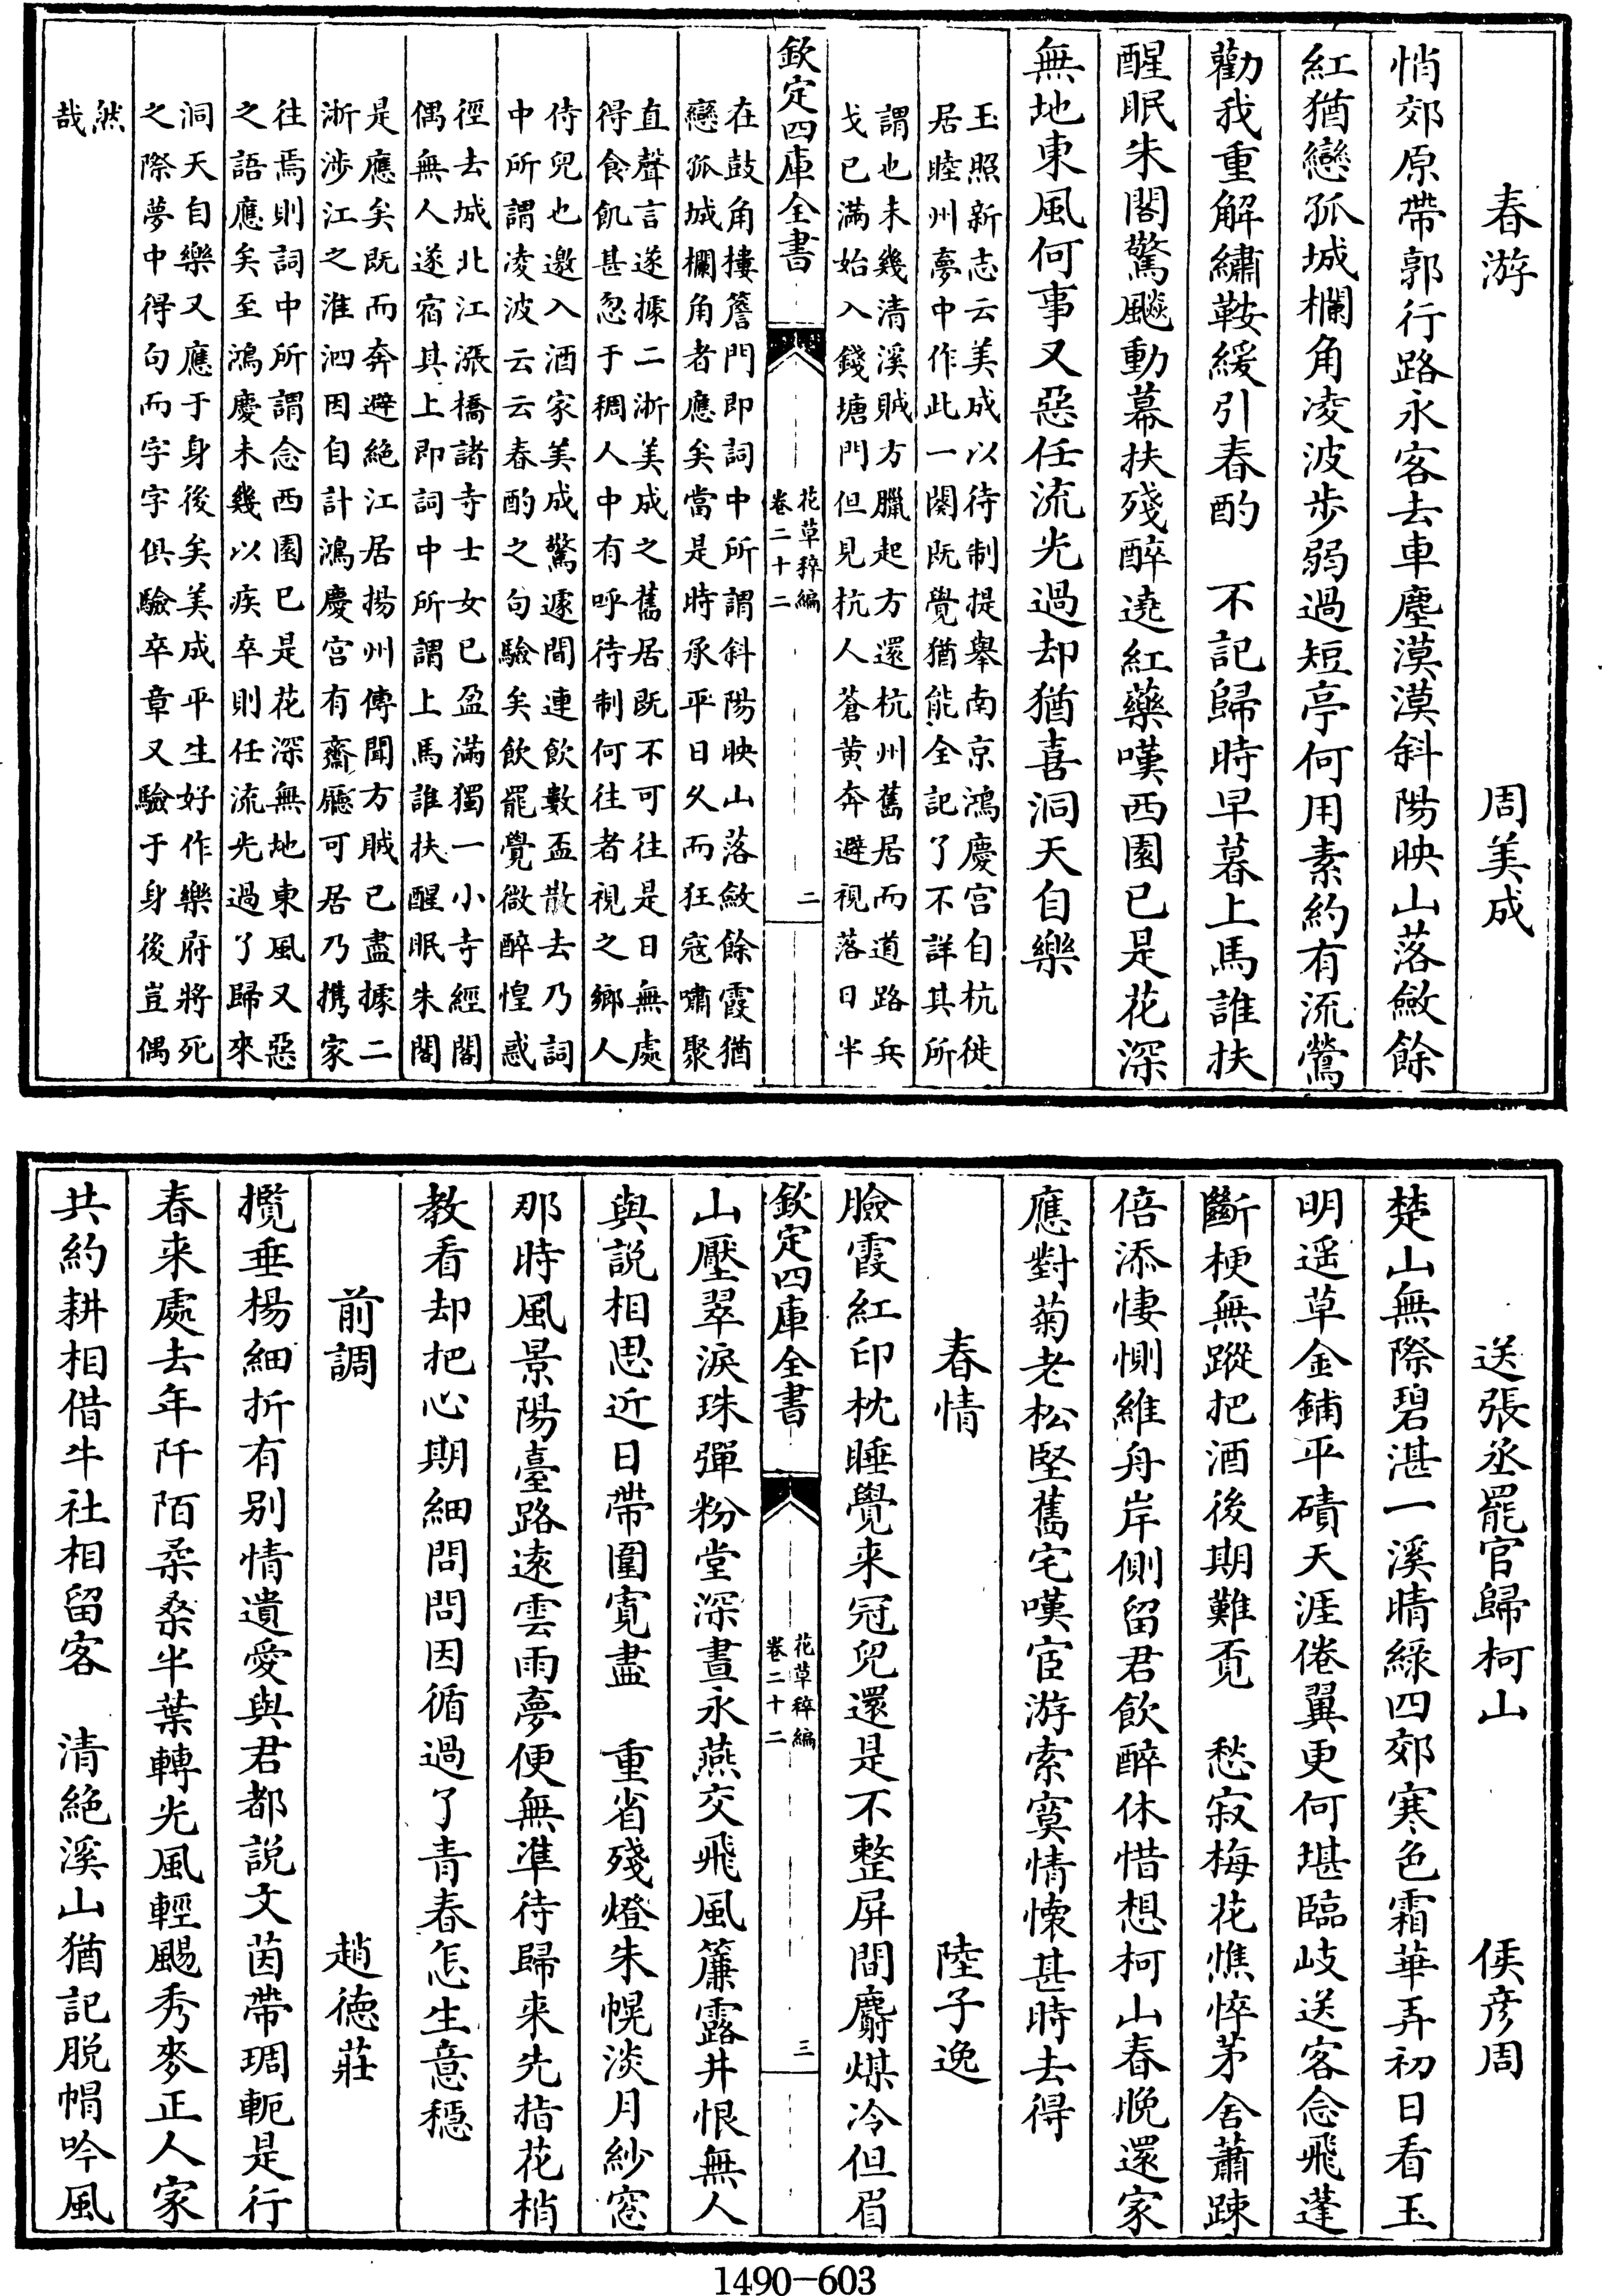 春游　周美成
悄郊原帶郭行路永客去車塵漠漠斜陽映山落斂餘
紅猶戀孤城欄角凌波步弱過短亭何用素約有流鶯
勸我重解繡鞍緩引春酌　不記歸時早暮上馬誰扶
醒眠朱閣驚飈動幕扶殘醉遶紅藥嘆西園已是花深
無地東風何事又惡任流光過却猶喜洞天自樂
玉照新志云美成以待制提舉南京鴻慶宫自杭徙
居睦州夢中作此一闋既覺猶能全記了不詳其所
謂也未幾清溪賊方臘起方還杭州舊居而道路兵
戈已滿始入錢塘門但見杭人蒼黄奔避視落日半
欽定四庫全書　花草稡編
卷二十二　二
在鼓角樓簷門即詞中所謂斜陽映山落斂餘霞猶
戀孤城欄角者應矣當是時承平日久而狂寇嘯聚
直聲言遂據二浙美成之舊居既不可往是日無處
得食飢甚忽于稠人中有呼待制何往者視之鄉人
侍兒也邀入酒家美成驚遽間連飲數盃散去乃詞
中所謂凌波云云春酌之句驗矣飲罷覺微醉惶惑
徑去城北江漲橋諸寺士女已盈滿獨一小寺經閣
偶無人遂宿其上即詞中所謂上馬誰扶醒眠朱閣
是應矣既而奔避絶江居揚州傳聞方賊已盡據二
浙涉江之淮泗因自計鴻慶宫有齋廳可居乃携家
往焉則詞中所謂念西園已是花深無地東風又惡
之語應矣至鴻慶未幾以疾卒則任流光過了歸來
洞天自樂又應于身後矣美成平生好作樂府將死
之際夢中得句而字字俱驗卒章又驗于身後豈偶
然
哉
送張丞罷官歸柯山　侯彦周
楚山無際碧湛一溪晴緑四郊寒色霜華弄初日看玉
明遥草金鋪平磧天涯倦翼更何堪臨岐送客念飛蓬
斷梗無蹤把酒後期難覓　愁寂梅花憔悴茅舍蕭踈
倍添悽惻維舟岸側留君飲醉休惜想柯山春晚還家
應對菊老松堅舊宅嘆宦游索寞情懷甚時去得
春情　陸子逸
臉霞紅印枕睡覺来冠兒還是不整屏間麝煤冷但眉
欽定四庫全書　花草稡編
卷二十二　三
山壓翠淚珠彈粉堂深晝永燕交飛風簾露井恨無人
與説相思近日帶圍寛盡　重省殘燈朱幌淡月紗窓
那時風景陽臺路遠雲雨夢便無凖待歸来先指花梢
教看却把心期細問問因循過了青春怎生意穩
前調　趙徳莊
攬垂楊細折有别情遺愛與君都説文茵帶琱軛是行
春来處去年阡陌柔桑半葉轉光風輕颺秀麥正人家
共約耕相借牛社相留客　清絶溪山猶記脱帽吟風
1490-603